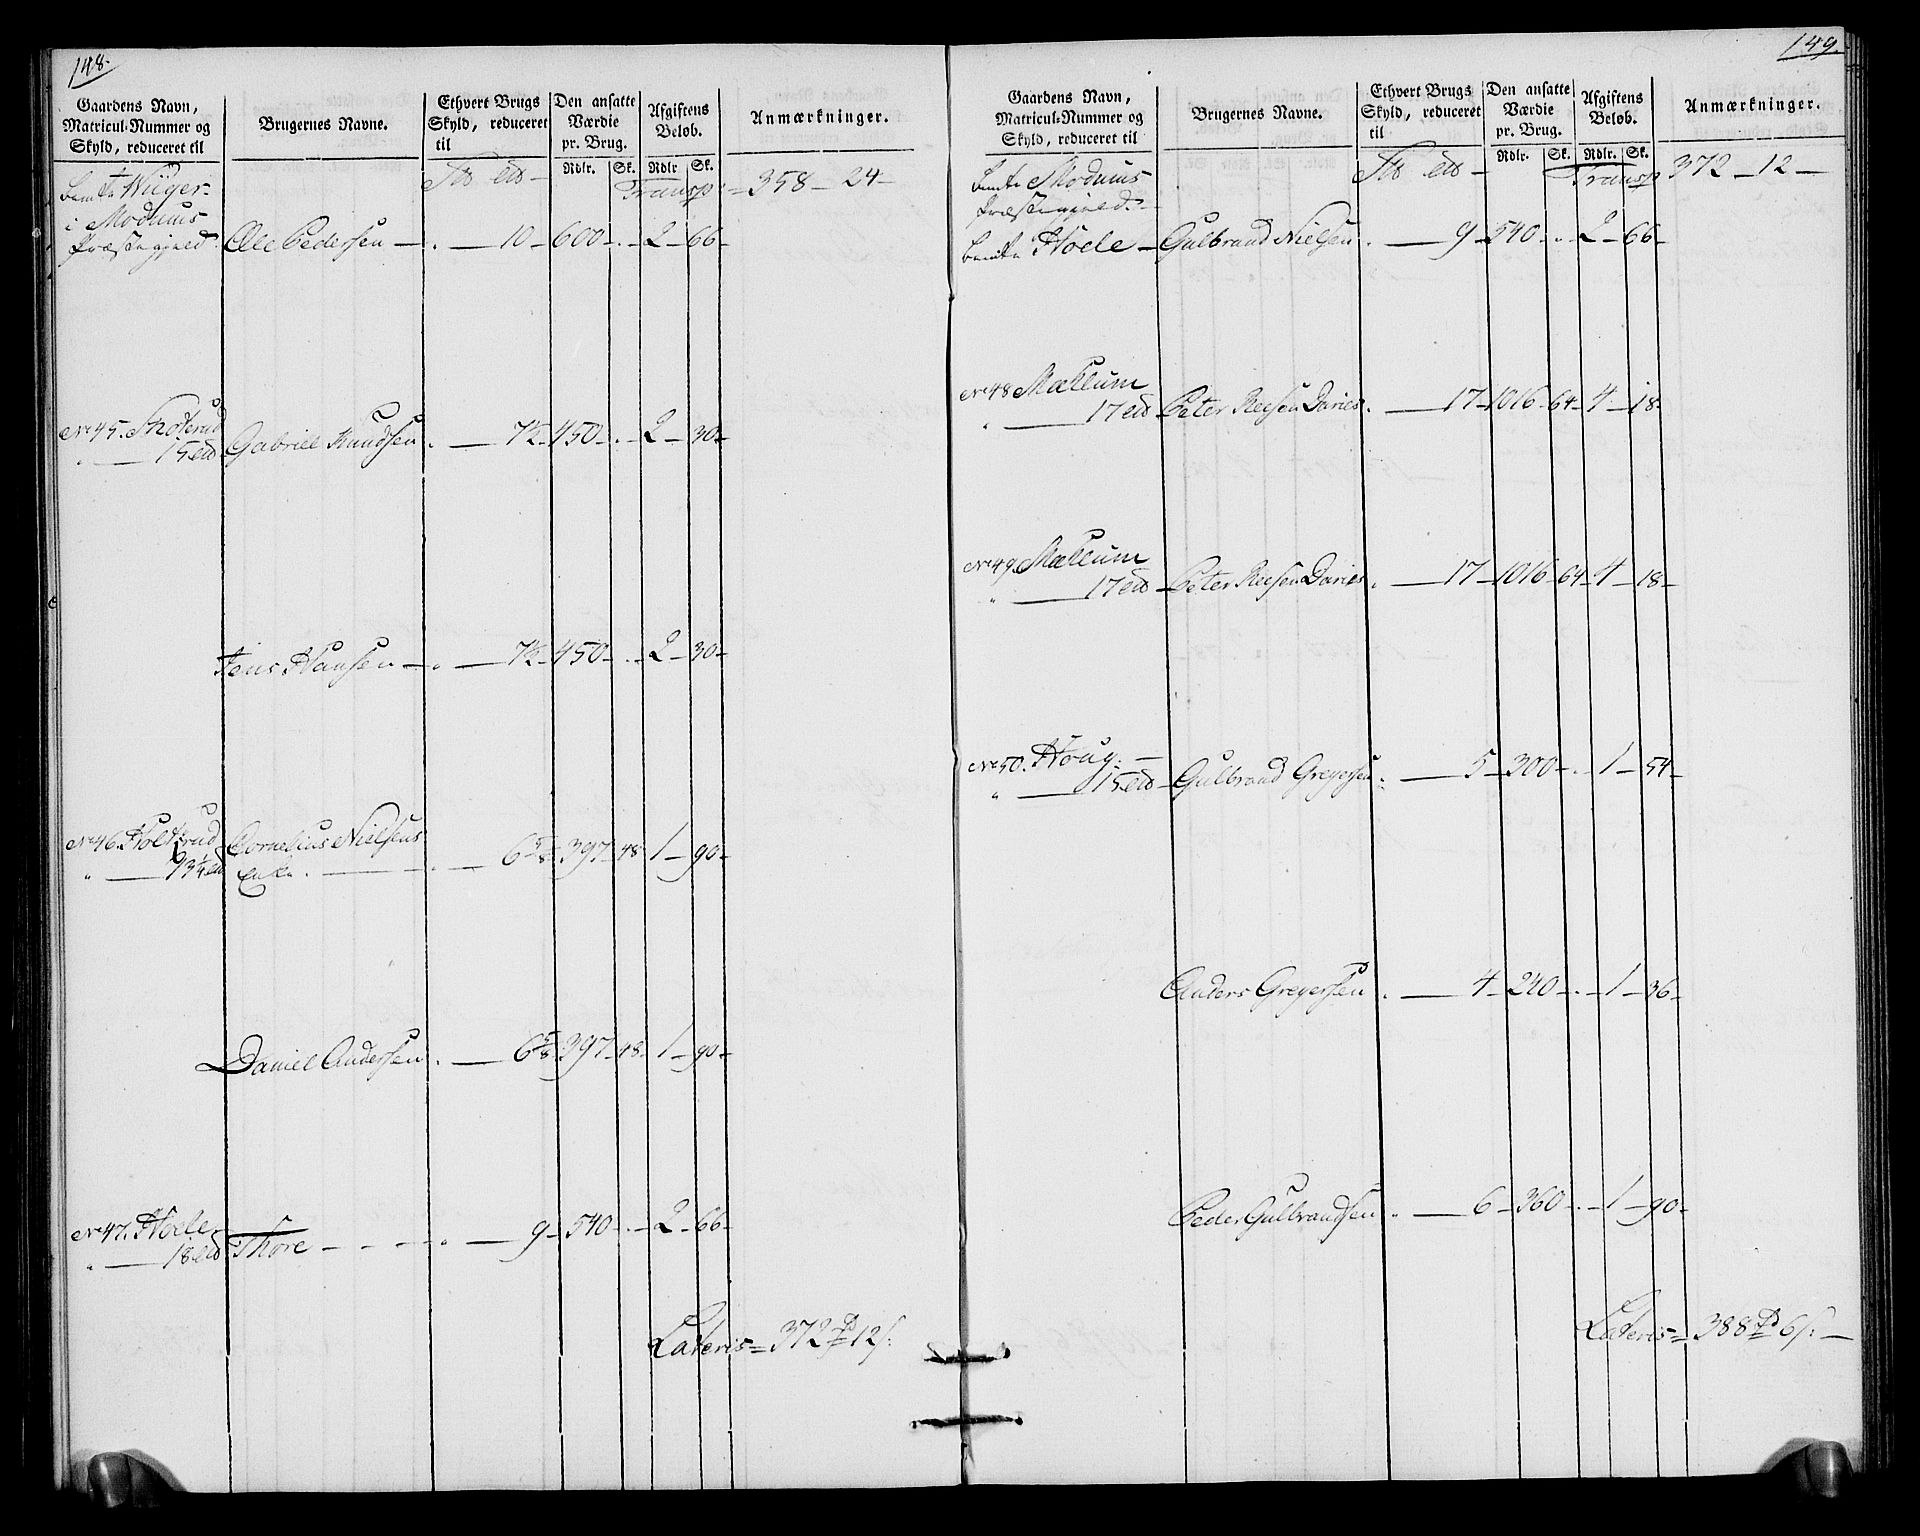 148.
Gaardens Navn, Matricul-Nummer og Skyld, reduceret til
Brugernes Navne.
Ethvert Brugs Skyld, reduceret til
Den ansatte Værdie pr. Brug.
Rdlr. Sk.
Afgiftens Beløb.
Rdlr Sk.
Anmærkninger.
Transp: = 358 - 24 -
bemte Wiiger
i Modums
Præstegjeld. Ole Pedersen - . - 10 - 600 - . - 2 - 66 -
No 45. Skoterud
" - 15 Gabriel Knudsen . - 7½ - 450 - . - 2 - 30 -
Jens Hansen - . - 7½ - 450 - . - 2 - 30 -
No 46. Holterud Cornelius Nielsens
" - 13¼ Enke . - . - 6 5/8 - 397 - 48 - 1 - 90 -
Daniel Andersen . - 6 5/8 - 397 - 48 - 1 - 90 -
No 47. Hoele
" - 18 Thore - - - - " - 9 - 540 - . - 2 - 66 -
Lateris = 372 rd 12 s:
149.
Gaardens Navn, Matricul-Nummer og Skyld, reduceret til
Brugernes Navne.
Ethvert Brugs Skyld, reduceret til
Den ansatte Værdie pr. Brug.
Rdlr. Sk.
Afgiftens Beløb.
Rdlr. Sk.
Anmærkninger.
Transp 372 - 12 -
bemte Modums
Præstegjeld. -
bemte Hoele - Gulbrand Nielsen . - 9 - 540 - . - 2 - 66 -
No 48 Mællum
" - 17 Peter Reesen Daries . - 17 - 1016 - 64 - 4 - 18 -
No 49 Mællum
" - 17 - Peter Reesen Daries . - 17 - 1016 - 64 - 4 - 18 -
No 50. Houg. -
" - 15 - Gulbrand Gregersen . - 5 - 300 - . - 1 - 54 -
Anders Gregersen . - 4 - 240 - . - 1 - 36 -
Peder Gulbrandsen . - 6 - 360 - . - 1 - 90 -
Lateris = 388 rd 6 s: -